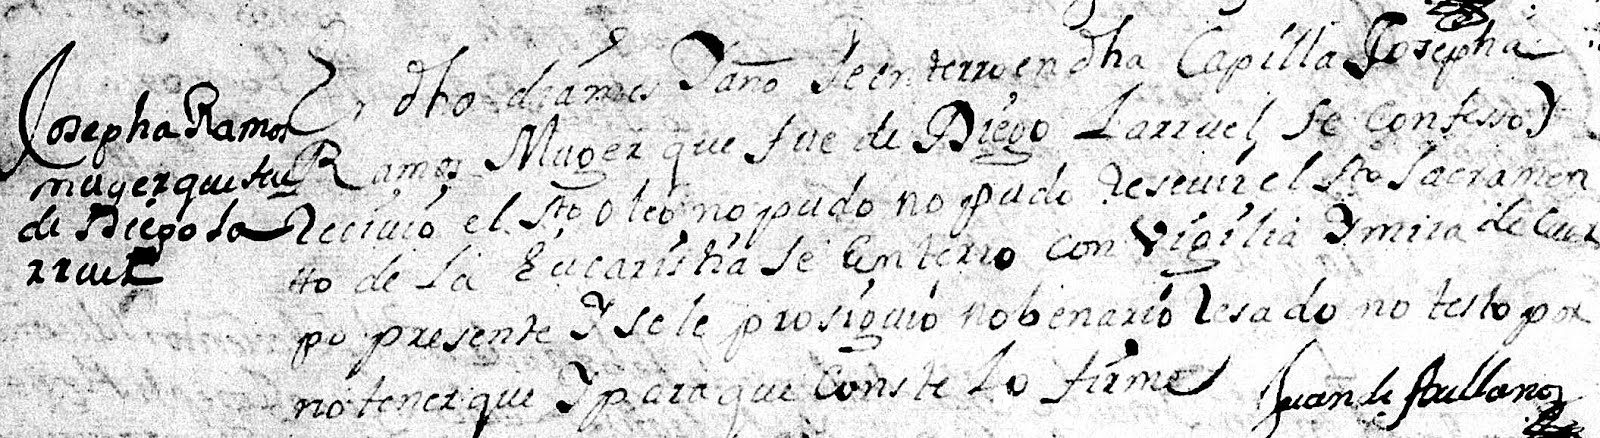 Josepha Ramos
muger que fue
de Diego La
rruel
En dho dia mes Y año Se enterro en dha Capilla Josepha
Ramos Muger que fue de Diego Larruel se confesso Y
recivio el sto oleo no pudo no pudo reseuir el sto sacramen
tto de la Eucaristia se enterro con vigilia Y misa de cuer
po presente Y se le prosiguio nobenario resado no testo por
no tener que Y para que conste lo firme
Juan de Arellano